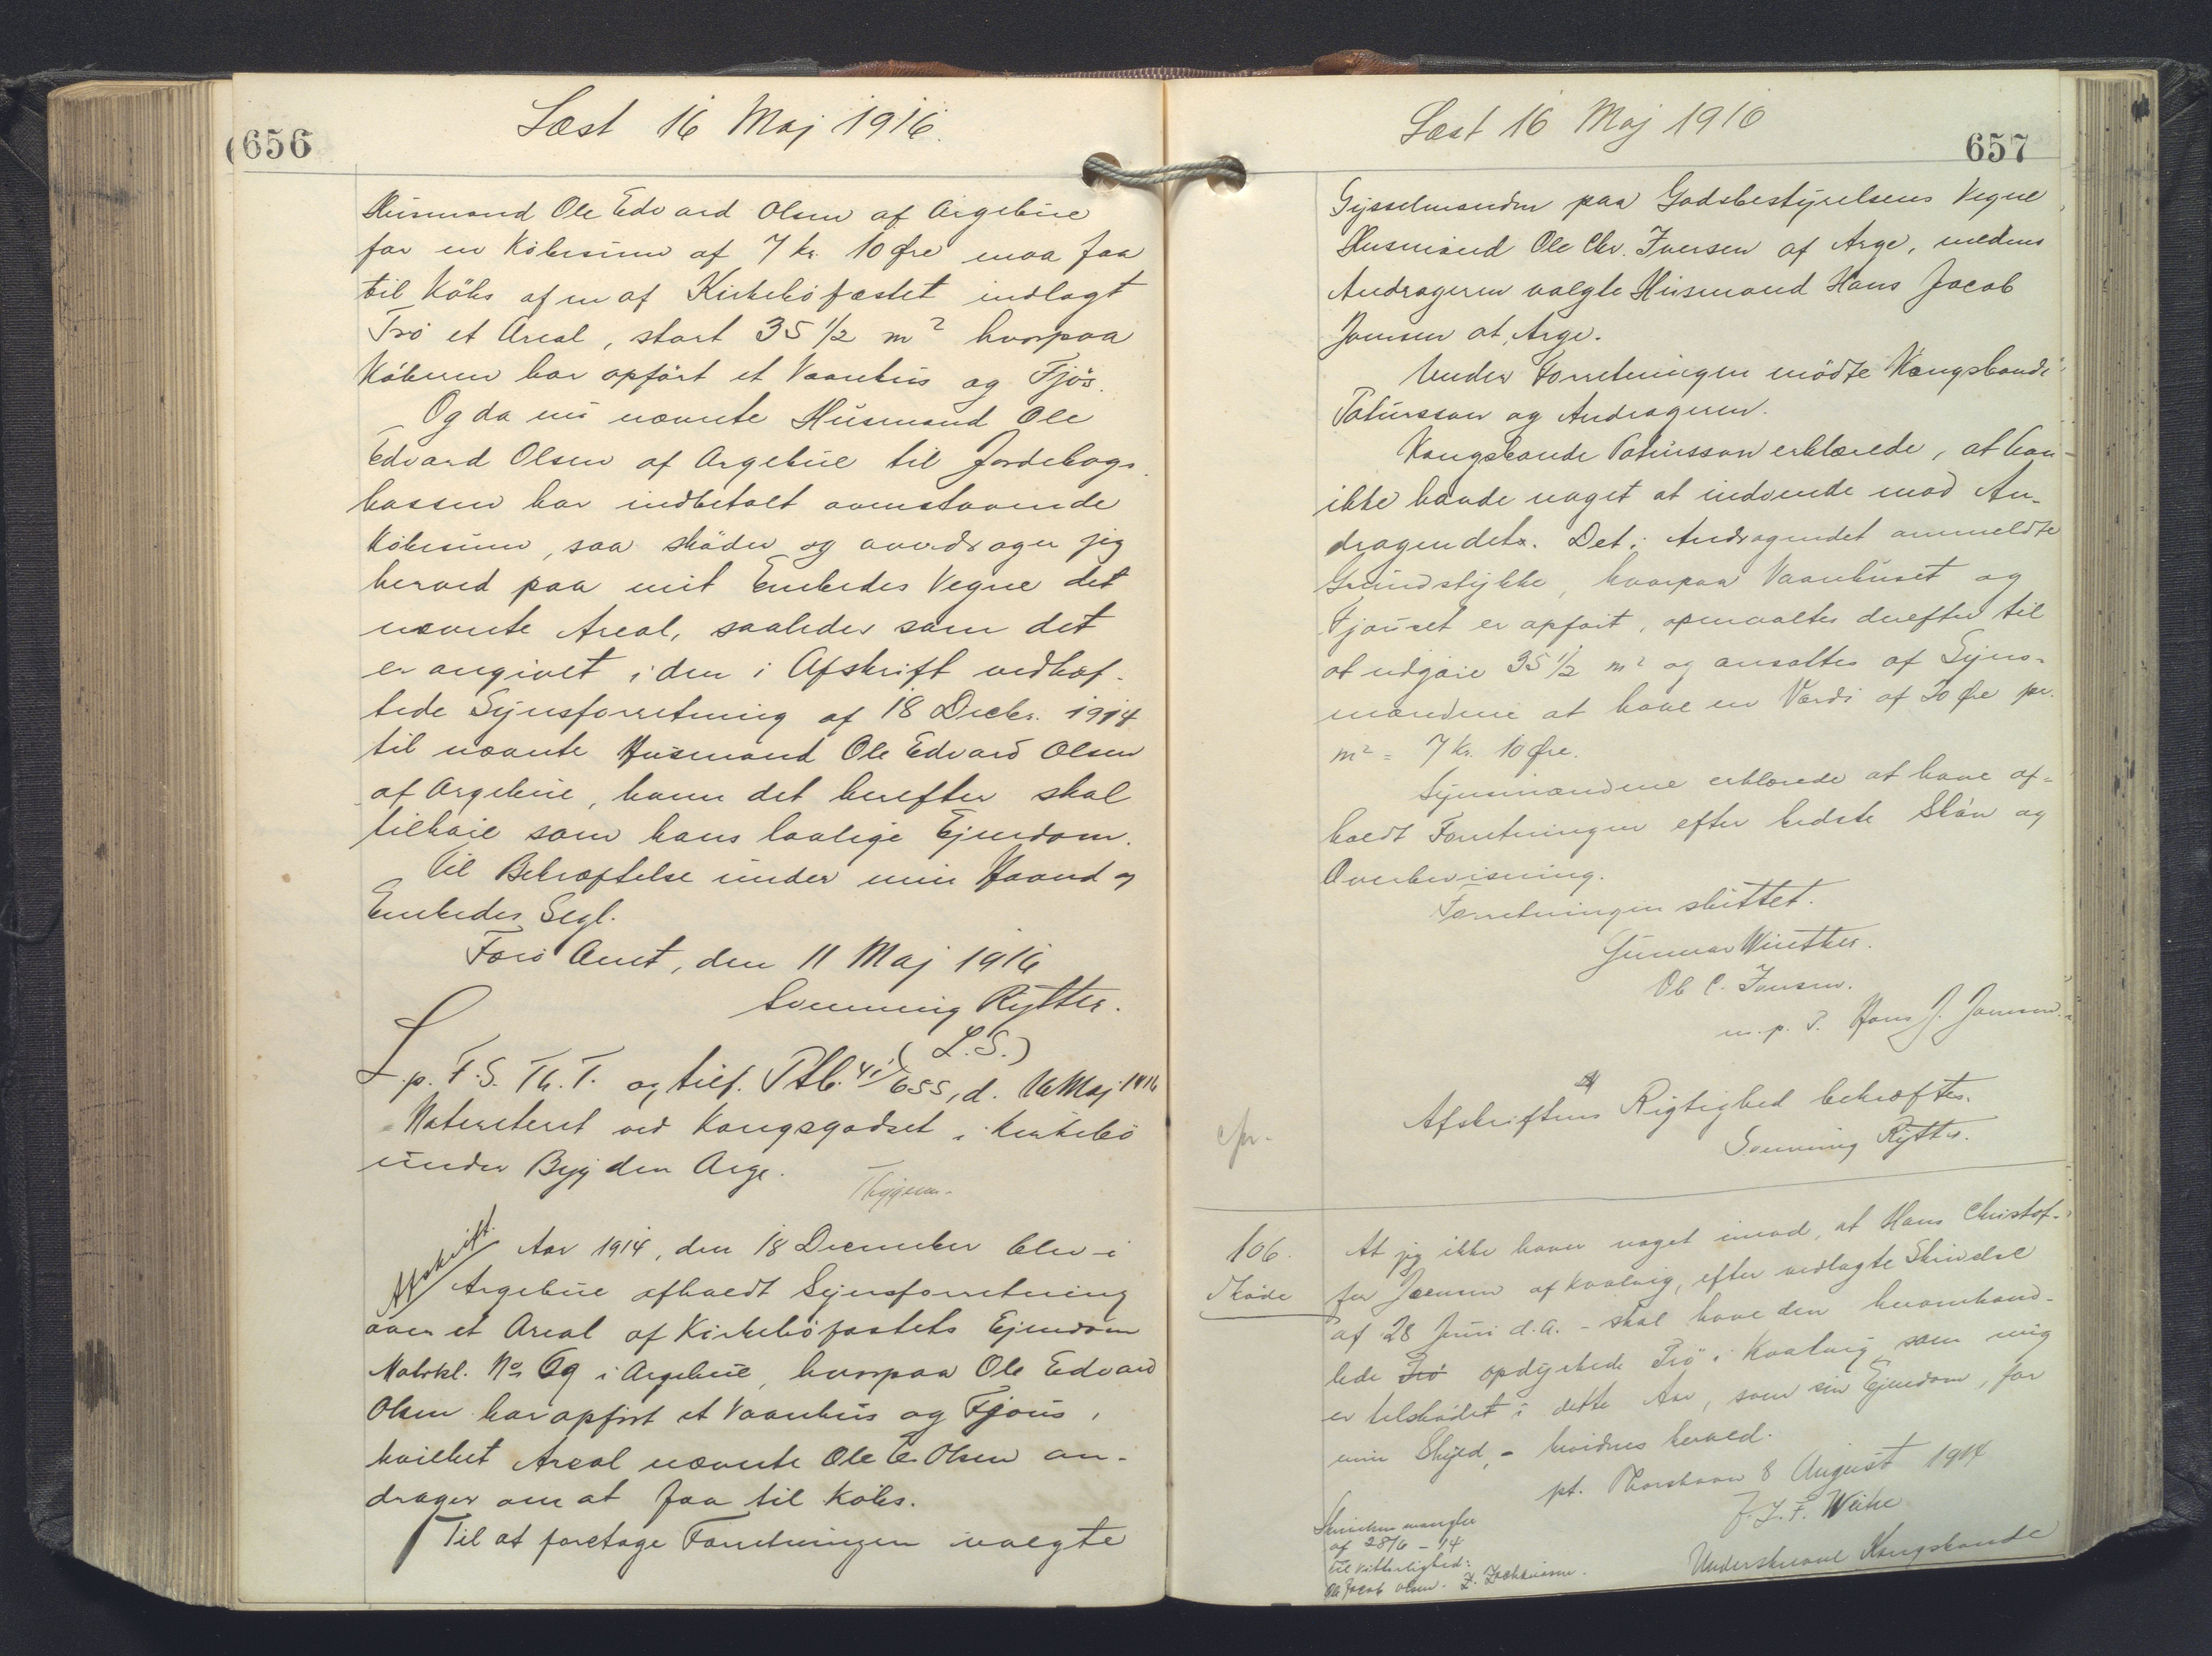 656
Læst 16 Maj 1916.
Husmand Ole Edvard Olsen af Argebue
for en Købesum af 7 Kr. 10 Øre maa faa
til Købs af en af Kirkebøfæstet indlagt
Trø et Areal, stort 35 1/2 m² hvorpaa
Køberen har opført et Vaanhus og Fjøs.
Og da nu nævnte Husmand Ole
Edvard Olsen af Argebue til Jordebogs-
kassen har indbetalt ovenstaaende
Købesum, saa skøder og overdrager jeg
herved paa mit Embedes Vegne det
nævnte Areal, saaledes som det
er angivet i den i Afskrift vedhæf-
tede Synsforretning af 18 Decbr. 1914
til nævnte Husmand Ole Edvard Olsen
af Argebue, hvem det herefter skal
tilhøre som hans lovlige Ejendom.
Til Bekræftelse under min Haand og
Embedes Segl.
Færø Amt, den 11 Maj 1916
Svenning Rytter.
(L.S.)
L. p. F. S. Th. T. og tilf. Ptb. 41/655, d. 16 Maj 1916
Noteret ved Kongsgodset i Kirkebø
under Bygden Arge.
Afskrift
Aar 1914, den 18 December blev i
Argebue afholdt Synsforretning
over et Areal af Kirkebøfæstets Ejendom
Matrkl. No 69 i Argebue, hvorpaa Ole Edvard
Olsen har opført et Vaanhus og Fjøus,
hvilket Areal nævnte Ole E. Olsen an-
drager om at faa til Købs.
Til at foretage Forretningen valgte
Læst 16 Maj 1916
657
Sysselmanden paa Godsbestyrelsens Vegne
Husmand Ole Chr. Iversen af Arge, medens
Andrageren valgte Husmand Hans Jacob
Joensen af Arge.
Under Forretningen mødte Kongsbonde
Patursson og Andrageren.
Kongsbonde Patursson erklærede, at han
ikke havde noget at indvende mod An-
dragendet. Det i Andragendet ommeldte
Grundstykke, hvorpaa Vaanhuset og
Fjøuset er opført, opmaaltes derefter til
at udgøre 35 1/2 m² og ansattes af Syns-
mændene at have en Værdi af 20 Øre pr.
m² = 7 Kr. 10 Øre.
Synsmændene erklærede at have af-
holdt Forretningen efter bedste Skøn og
Overbevisning.
Forretningen sluttet.
Gunnar Winther.
Ole C. Iversen.
m. p. P. Hans J. Joensen.
Afskriftens Rigtighed bekræftes.
Svenning Rytter.
cfr.
106.
Skøde
At jeg ikke haver noget imod, at Hans Christof-
fer Joensen af Kvalvig, efter vedlagte Skrivelse
af 28 Juni d.A. - skal have den heromhand-
lede Trø opdyrkede Trø i Kvalvig som mig
er tilskødet i dette Aar, som sin Ejendom, for
min Skyld, - bevidnes herved.
pt. Thorshavn 8 August 1914
J. F. Weihe
Underskreven Kongsbonde
Skrivelsen mangler
af 28/6 - 14
Til Vitterlighed:
Ole Jacob Olsen. Z. Zachariasen.